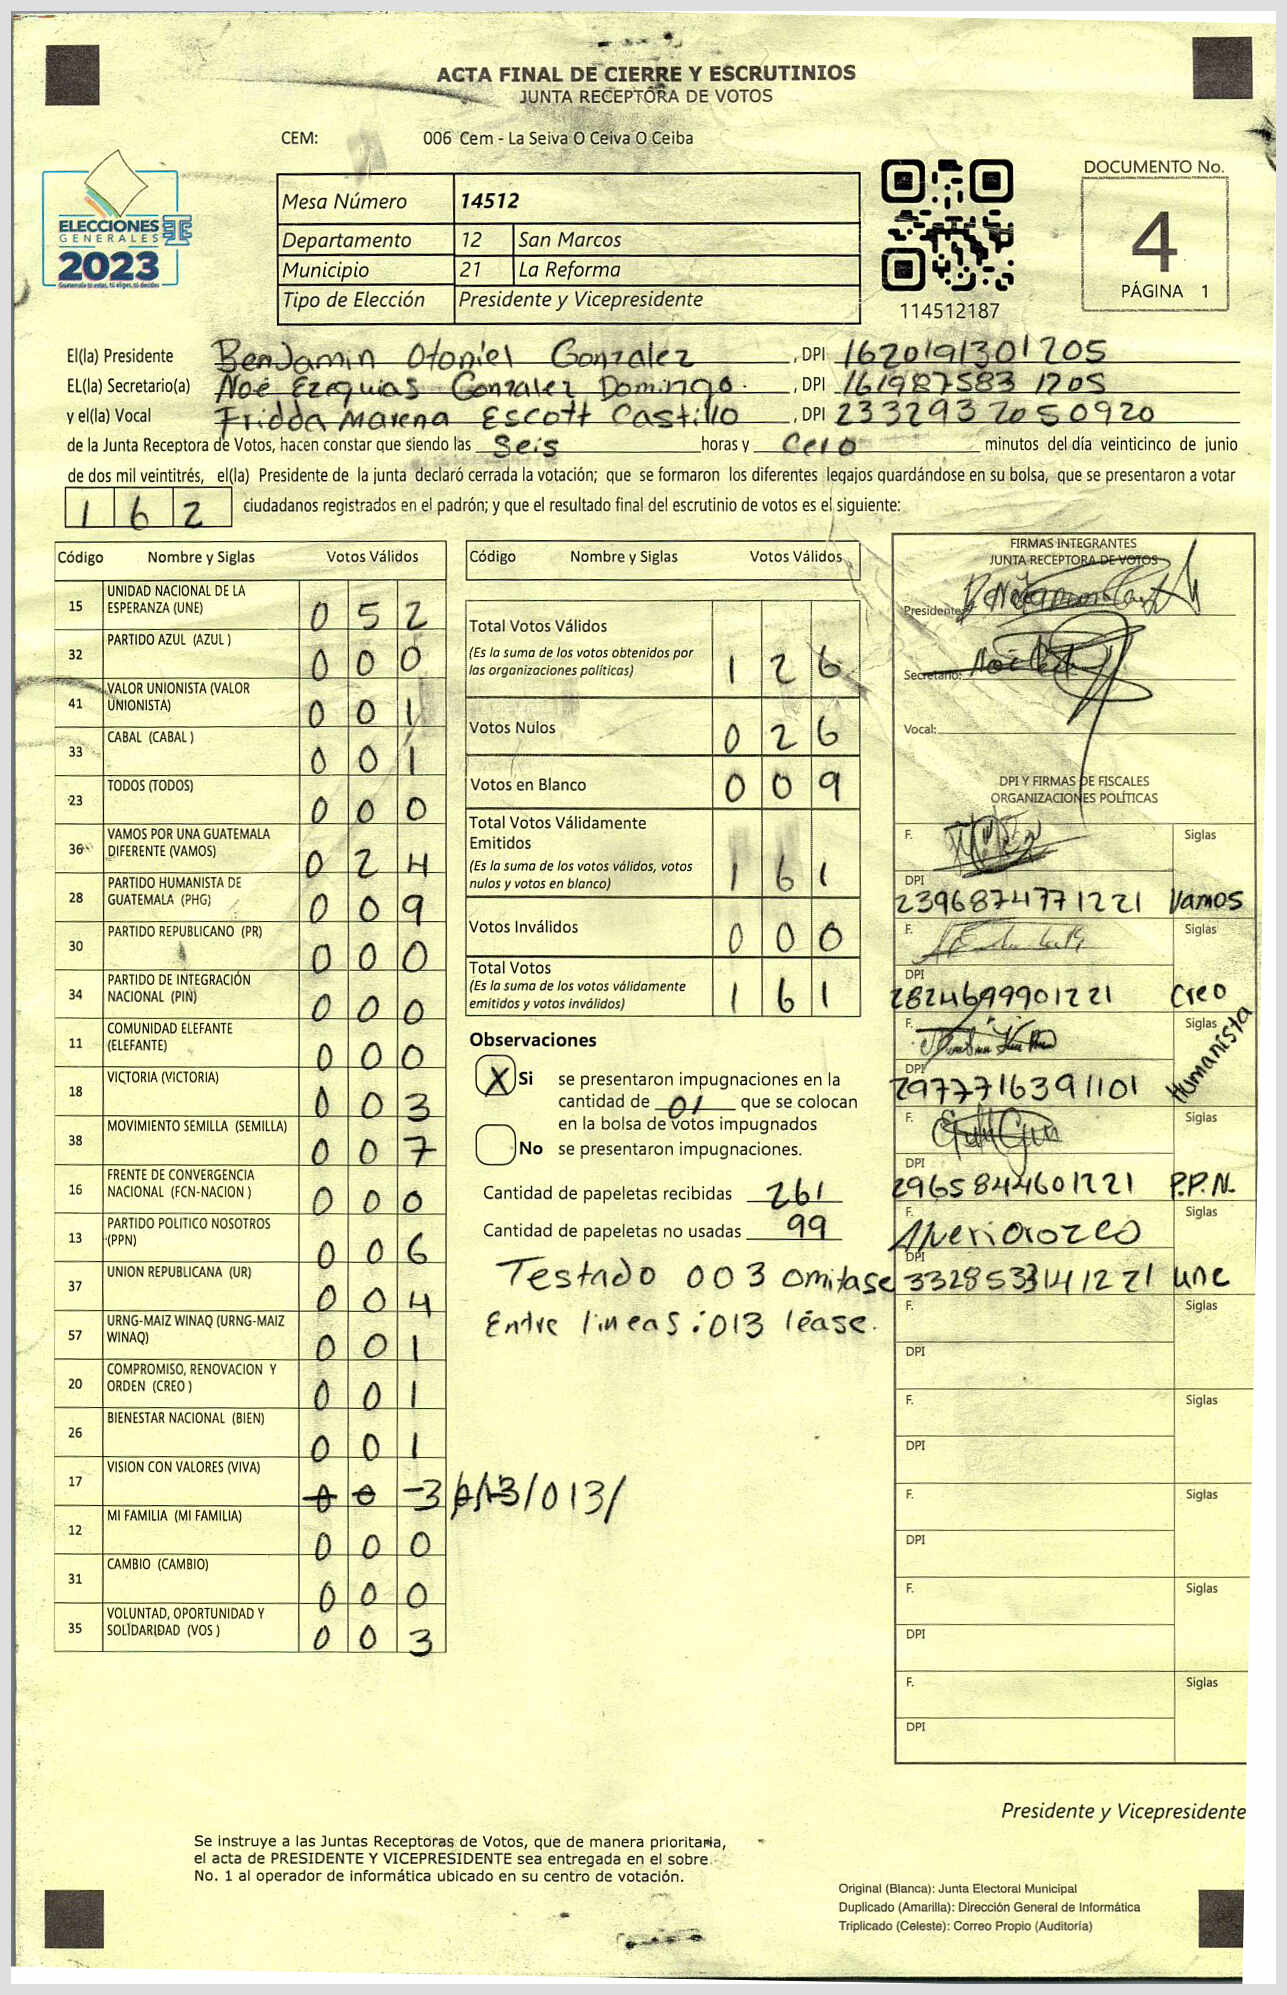 ACTA FINAL DE CIERRE Y ESCRUTINIOS
JUNTA RECEPTORA DE VOTOS
CEM: 006 Cem - La Seiva O Ceiva O Ceiba
ELECCIONES
GENERALES
2023
Mesa Número 14512
Departamento 12 San Marcos
Municipio 21 La Reforma
Tipo de Elección Presidente y Vicepresidente
114512187
DOCUMENTO No.
4
PÁGINA 1
El(la) Presidente Benjamin Otoniel Gonzalez, DPI 1620191301205
EL(la) Secretario(a) Noé Ezequias Gonzalez Domingo. , DPI 161987583 1205
y el(la) Vocal Fridda Marena Escott Castillo , DPI 2332937050920
de la Junta Receptora de Votos, hacen constar que siendo las Seis horas y Cero minutos del día veinticinco de junio
de dos mil veintitrés, el(la) Presidente de la junta declaró cerrada la votación; que se formaron los diferentes legajos guardándose en su bolsa, que se presentaron a votar
162 ciudadanos registrados en el padrón; y que el resultado final del escrutinio de votos es el siguiente:
Código Nombre y Siglas Votos Válidos
15 UNIDAD NACIONAL DE LA ESPERANZA (UNE) 052
32 PARTIDO AZUL (AZUL ) 000
41 VALOR UNIONISTA (VALOR UNIONISTA) 001
33 CABAL (CABAL ) 001
23 TODOS (TODOS) 000
36 VAMOS POR UNA GUATEMALA DIFERENTE (VAMOS) 024
28 PARTIDO HUMANISTA DE GUATEMALA (PHG) 009
30 PARTIDO REPUBLICANO (PR) 000
34 PARTIDO DE INTEGRACIÓN NACIONAL (PIN) 000
11 COMUNIDAD ELEFANTE (ELEFANTE) 000
18 VICTORIA (VICTORIA) 003
38 MOVIMIENTO SEMILLA (SEMILLA) 007
16 FRENTE DE CONVERGENCIA NACIONAL (FCN-NACION ) 000
13 PARTIDO POLITICO NOSOTROS (PPN) 006
37 UNION REPUBLICANA (UR) 004
57 URNG-MAIZ WINAQ (URNG-MAIZ WINAQ) 001
20 COMPROMISO, RENOVACION Y ORDEN (CREO ) 001
26 BIENESTAR NACIONAL (BIEN) 001
17 VISION CON VALORES (VIVA) 003 /013/
12 MI FAMILIA (MI FAMILIA) 000
31 CAMBIO (CAMBIO) 000
35 VOLUNTAD, OPORTUNIDAD Y SOLIDARIDAD (VOS ) 003
Código Nombre y Siglas Votos Válidos
Total Votos Válidos
(Es la suma de los votos obtenidos por las organizaciones políticas) 126
Votos Nulos 026
Votos en Blanco 009
Total Votos Válidamente Emitidos
(Es la suma de los votos válidos, votos nulos y votos en blanco) 161
Votos Inválidos 000
Total Votos
(Es la suma de los votos válidamente emitidos y votos inválidos) 161
Observaciones
X Si se presentaron impugnaciones en la
cantidad de 01 que se colocan
en la bolsa de votos impugnados
No se presentaron impugnaciones.
Cantidad de papeletas recibidas 261
Cantidad de papeletas no usadas 99
Testado 003 omitase
Entre lineas: 013 léase.
FIRMAS INTEGRANTES
JUNTA RECEPTORA DE VOTOS
Presidente:
Secretario:
Vocal:
DPI Y FIRMAS DE FISCALES
ORGANIZACIONES POLÍTICAS
F. Siglas
DPI
2396874771221 Vamos
F. Siglas
DPI
2824699901221 Creo
F. Siglas
DPI
2977716391101 Humanista
F. Siglas
DPI
2965844601221 P.P.N.
F. Siglas
DPI
3328533141221 une
F. Siglas
DPI
F. Siglas
DPI
F. Siglas
DPI
F. Siglas
DPI
F. Siglas
DPI
Presidente y Vicepresidente
Se instruye a las Juntas Receptoras de Votos, que de manera prioritaria,
el acta de PRESIDENTE Y VICEPRESIDENTE sea entregada en el sobre
No. 1 al operador de informática ubicado en su centro de votación.
Original (Blanca): Junta Electoral Municipal
Duplicado (Amarilla): Dirección General de Informática
Triplicado (Celeste): Correo Propio (Auditoría)